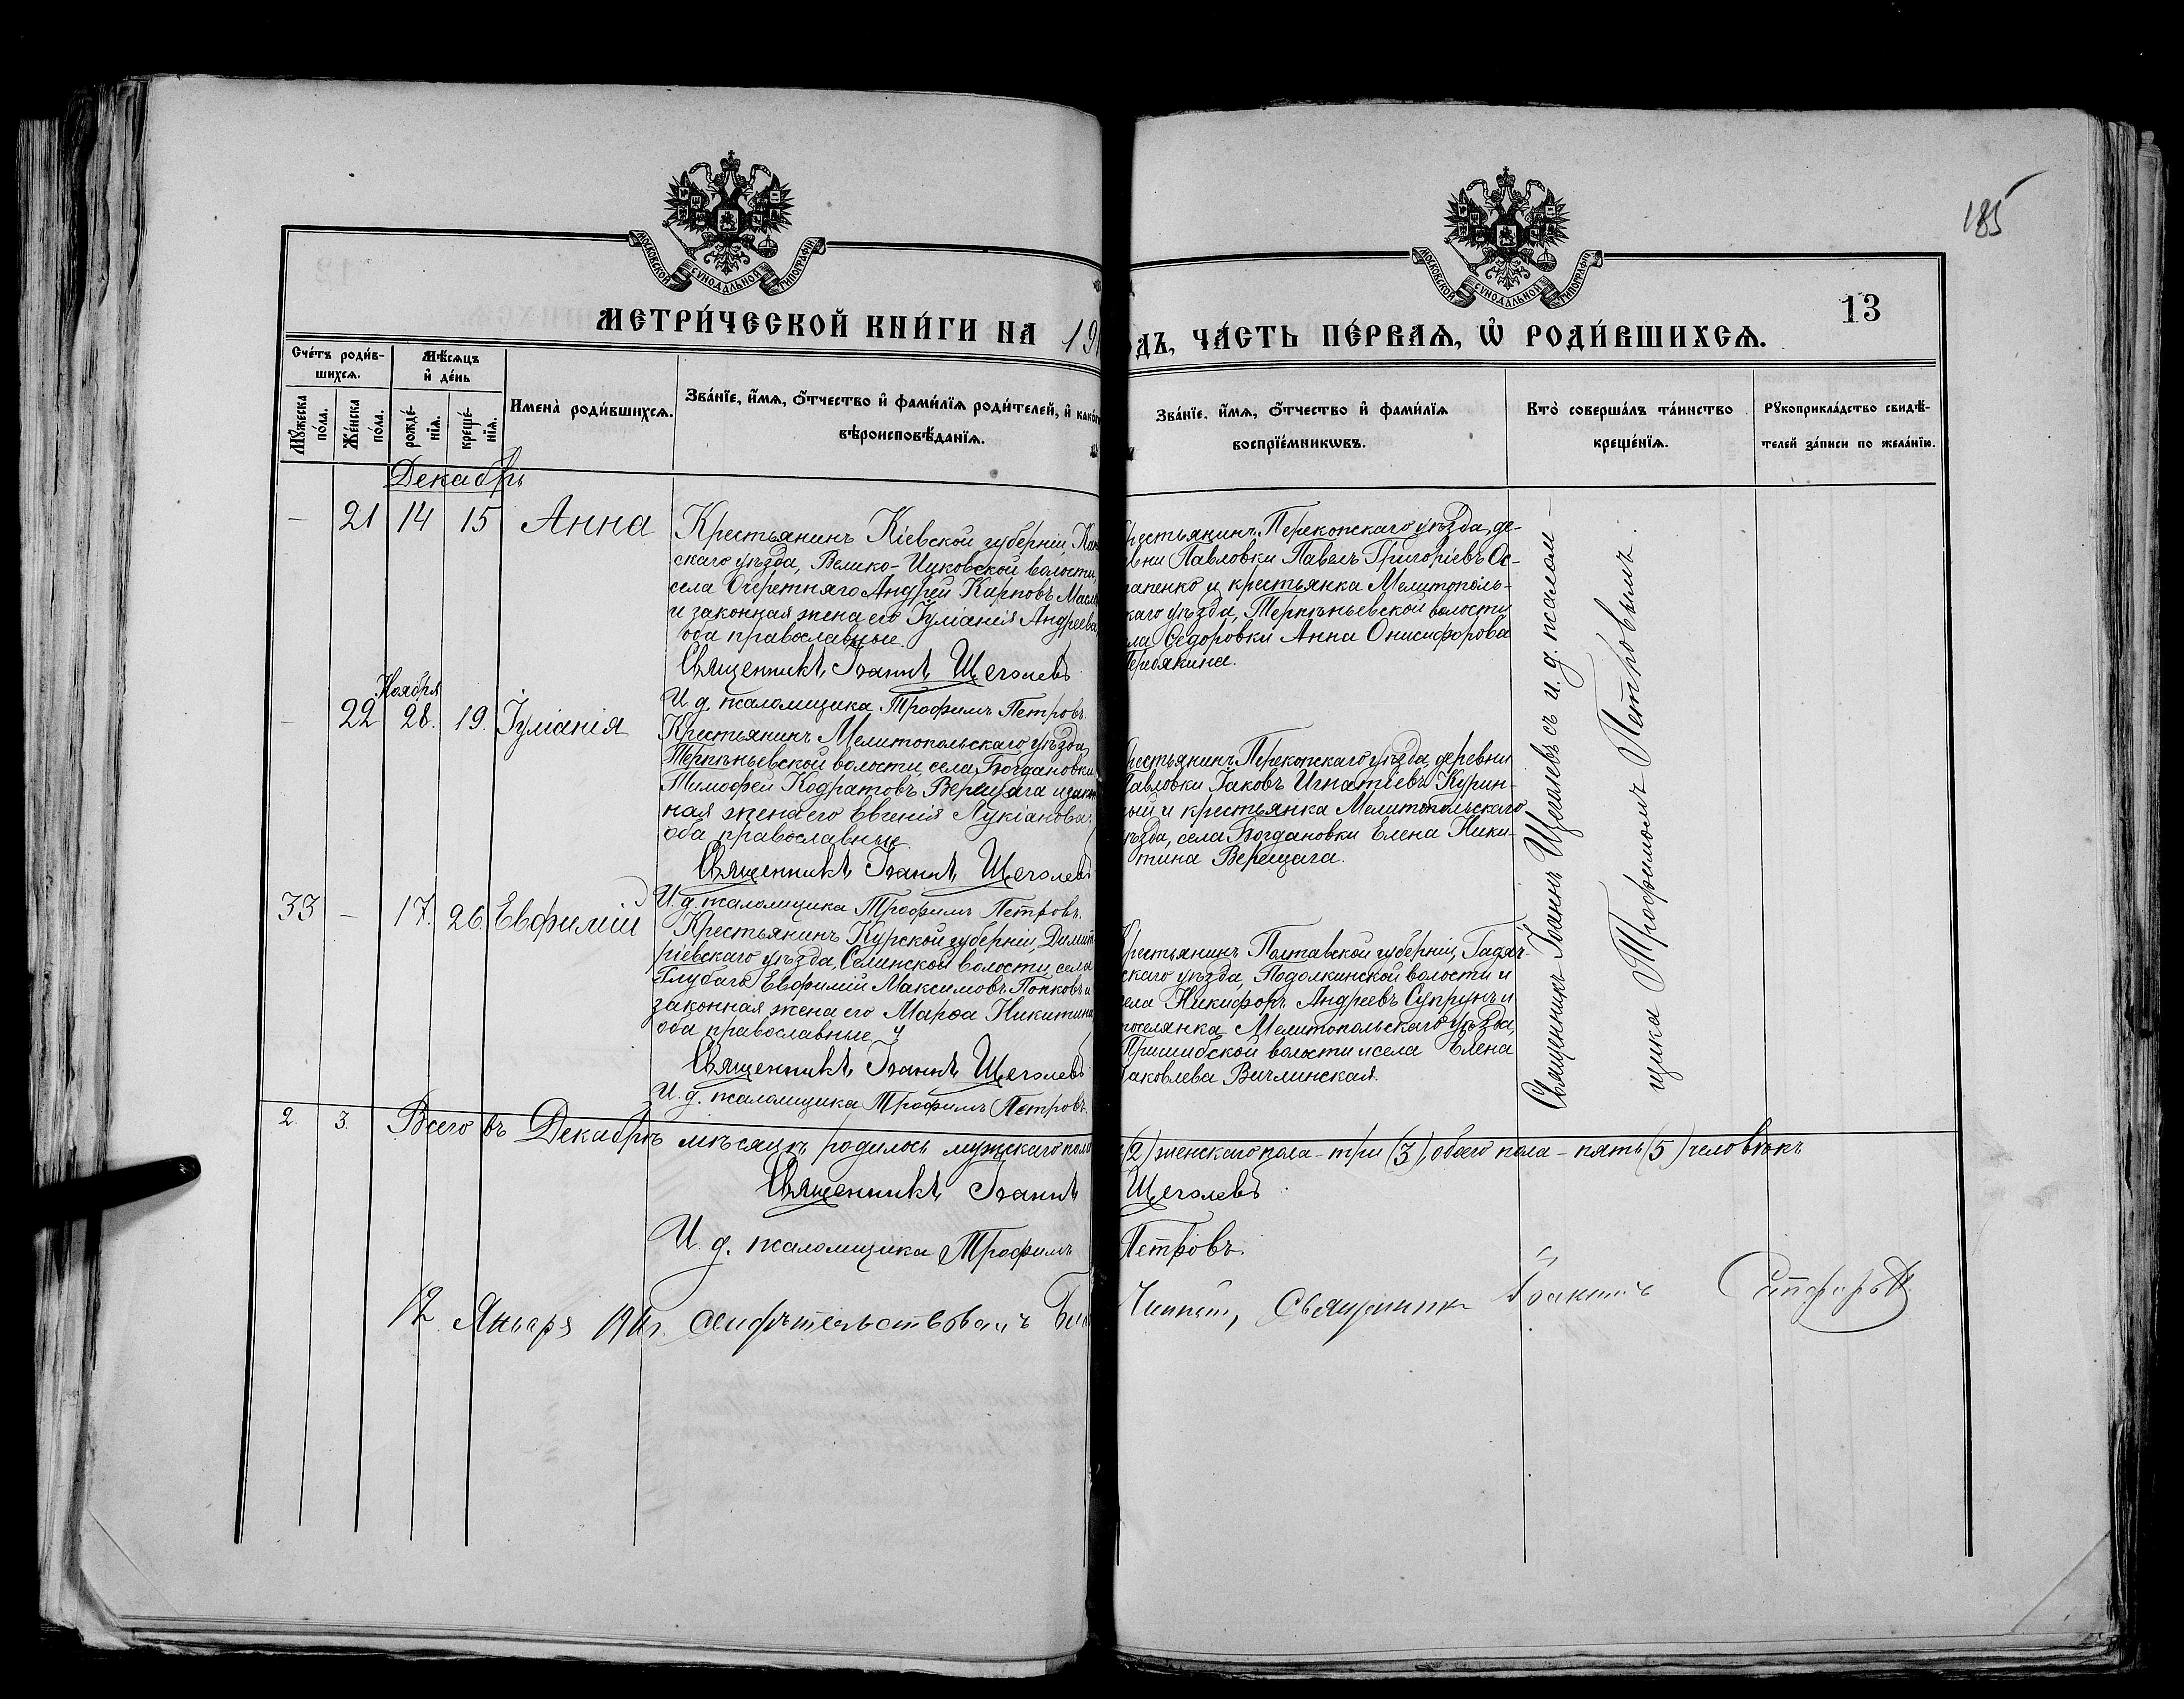 185
МОСКОВСКОЙ СѴНОДАЛЬНОЙ ТИПОГРАФІИ
МОСКОВСКОЙ СѴНОДАЛЬНОЙ ТИПОГРАФІИ
13
МЕТРИ́ЧЕСКОЙ КНИ́ГИ НА 191
ОДЪ, ЧА́СТЬ ПЕ́РВАѦ, Ѡ҆ РОДИ́ВШИХСѦ.
Сче́тъ роди́в-
шихсѧ.
Мꙋ́жеска
по́ла.
Же́нска
по́ла.
Мѣ́сѧцъ
и҆ де́нь
рожде́-
нїѧ.
креще́-
нїѧ.
Имена̀ роди́вшихсѧ.
Зва́нїе, и҆́мѧ, ѻ҆́тчество и҆ фами́лїѧ роди́телей, и҆ како́г
вѣроисповѣ́данїѧ.
Зва́нїе, и҆́мѧ, ѻ҆́тчество и҆ фами́лїѧ
воспрїе́мникѡвъ.
Кто̀ соверша́лъ та́инство
креще́нїѧ.
Рꙋкоприкла́дство свидѣ́-
телей за́писи по жела́нїю.
Декабрь
— 21 14 15 Анна
Крестьянинъ Кіевской губерніи, Кан
скаго уѣзда, Велико-Цуковской волости,
села Очеретняго Андрей Карповъ Масл
и законная жена его Іуліанія Андреева,
оба православные.
Священникъ Іоаннъ Щеголевъ
И. д. псаломщика Трофимъ Петровъ.
рестьянинъ Перекопскаго уѣзда, де-
вни Павловки Павелъ Григоріевъ Ос-
апенко и крестьянка Мелитополь-
каго уѣзда, Терпѣньевской волости
ла Ѳедоровки Анна Онисифорова
Теребякина.
Ноября
— 22 28. 19. Іуліанія
Крестьянинъ Мелитопольскаго уѣзда,
Терпѣньевской волости, села Богдановки
Тимоѳей Кодратовъ Верещага и закон
ная жена его Евгенія Лукіанова,
оба православные.
Священникъ Іоаннъ Щеголевъ
И. д. псаломщика Трофимъ Петровъ.
рестьянинъ Перекопскаго уѣзда, деревни
авловки Іаковъ Игнатіевъ Курин-
ый и крестьянка Мелитопольскаго
ѣзда, села Богдановки Елена Ники-
тина Верещага.
33 — 17. 26. Евфимій
Крестьянинъ Курской губерніи, Димит
ріевскаго уѣзда, Селинской волости, села
Глубаго Евфимій Максимовъ Попковъ и
законная жена его Марѳа Никитина
оба православные.
Священникъ Іоаннъ Щеголевъ
И. д. псаломщика Трофимъ Петровъ.
рестьянинъ Полтавской губерніи, Гадяч-
скаго уѣзда, Подолкинской волости и
ела Никифоръ Андреевъ Супрунъ и
поселянка Мелитопольскаго уѣзда,
Пришибской волости и села Елена
аковлева Вичлинская.
Священникъ Іоаннъ Щеголевъ съ и. д. псалом-
щика Трофимомъ Петровымъ.
2. 3. Всего въ Декабрѣ мѣсяцѣ родилось мужскаго пола
(2) женскаго пола – три (3), обоего пола – пять (5) человѣкъ
Священникъ Іоаннъ
Щеголевъ
И. д. псаломщика Трофимъ
Петровъ.
12 Января 191 г. свидѣтельствовалъ
Священникъ